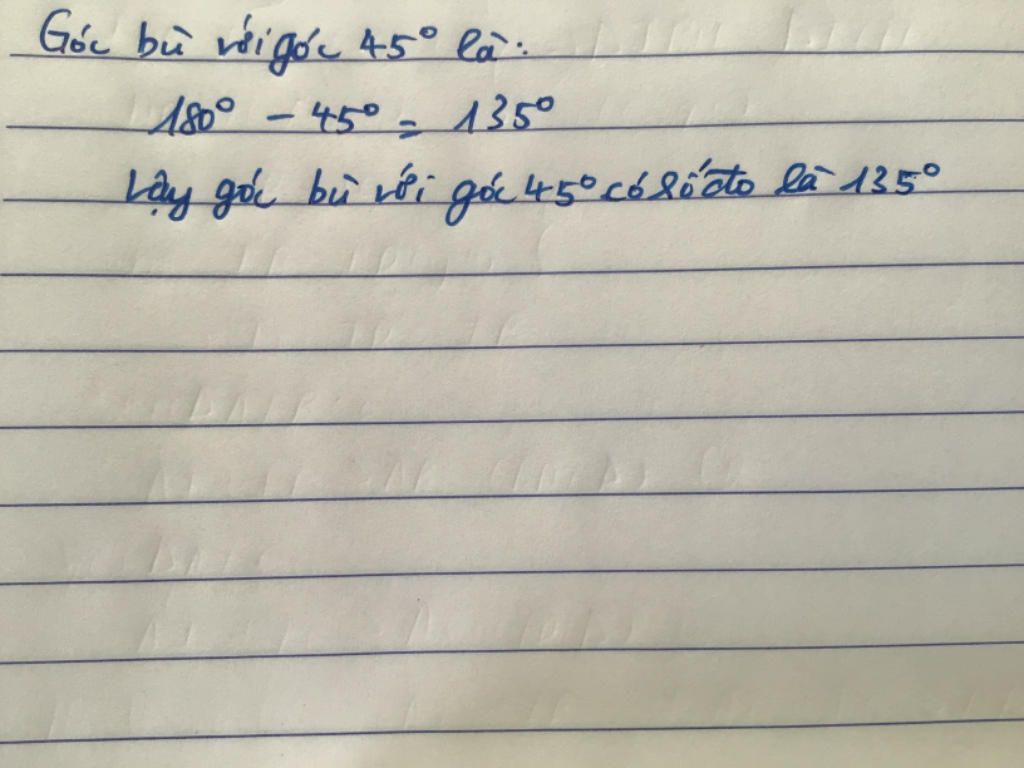 Góc bù với góc 45° là:
180° - 45° = 135°
Vậy góc bù với góc 45° có số đo là 135°